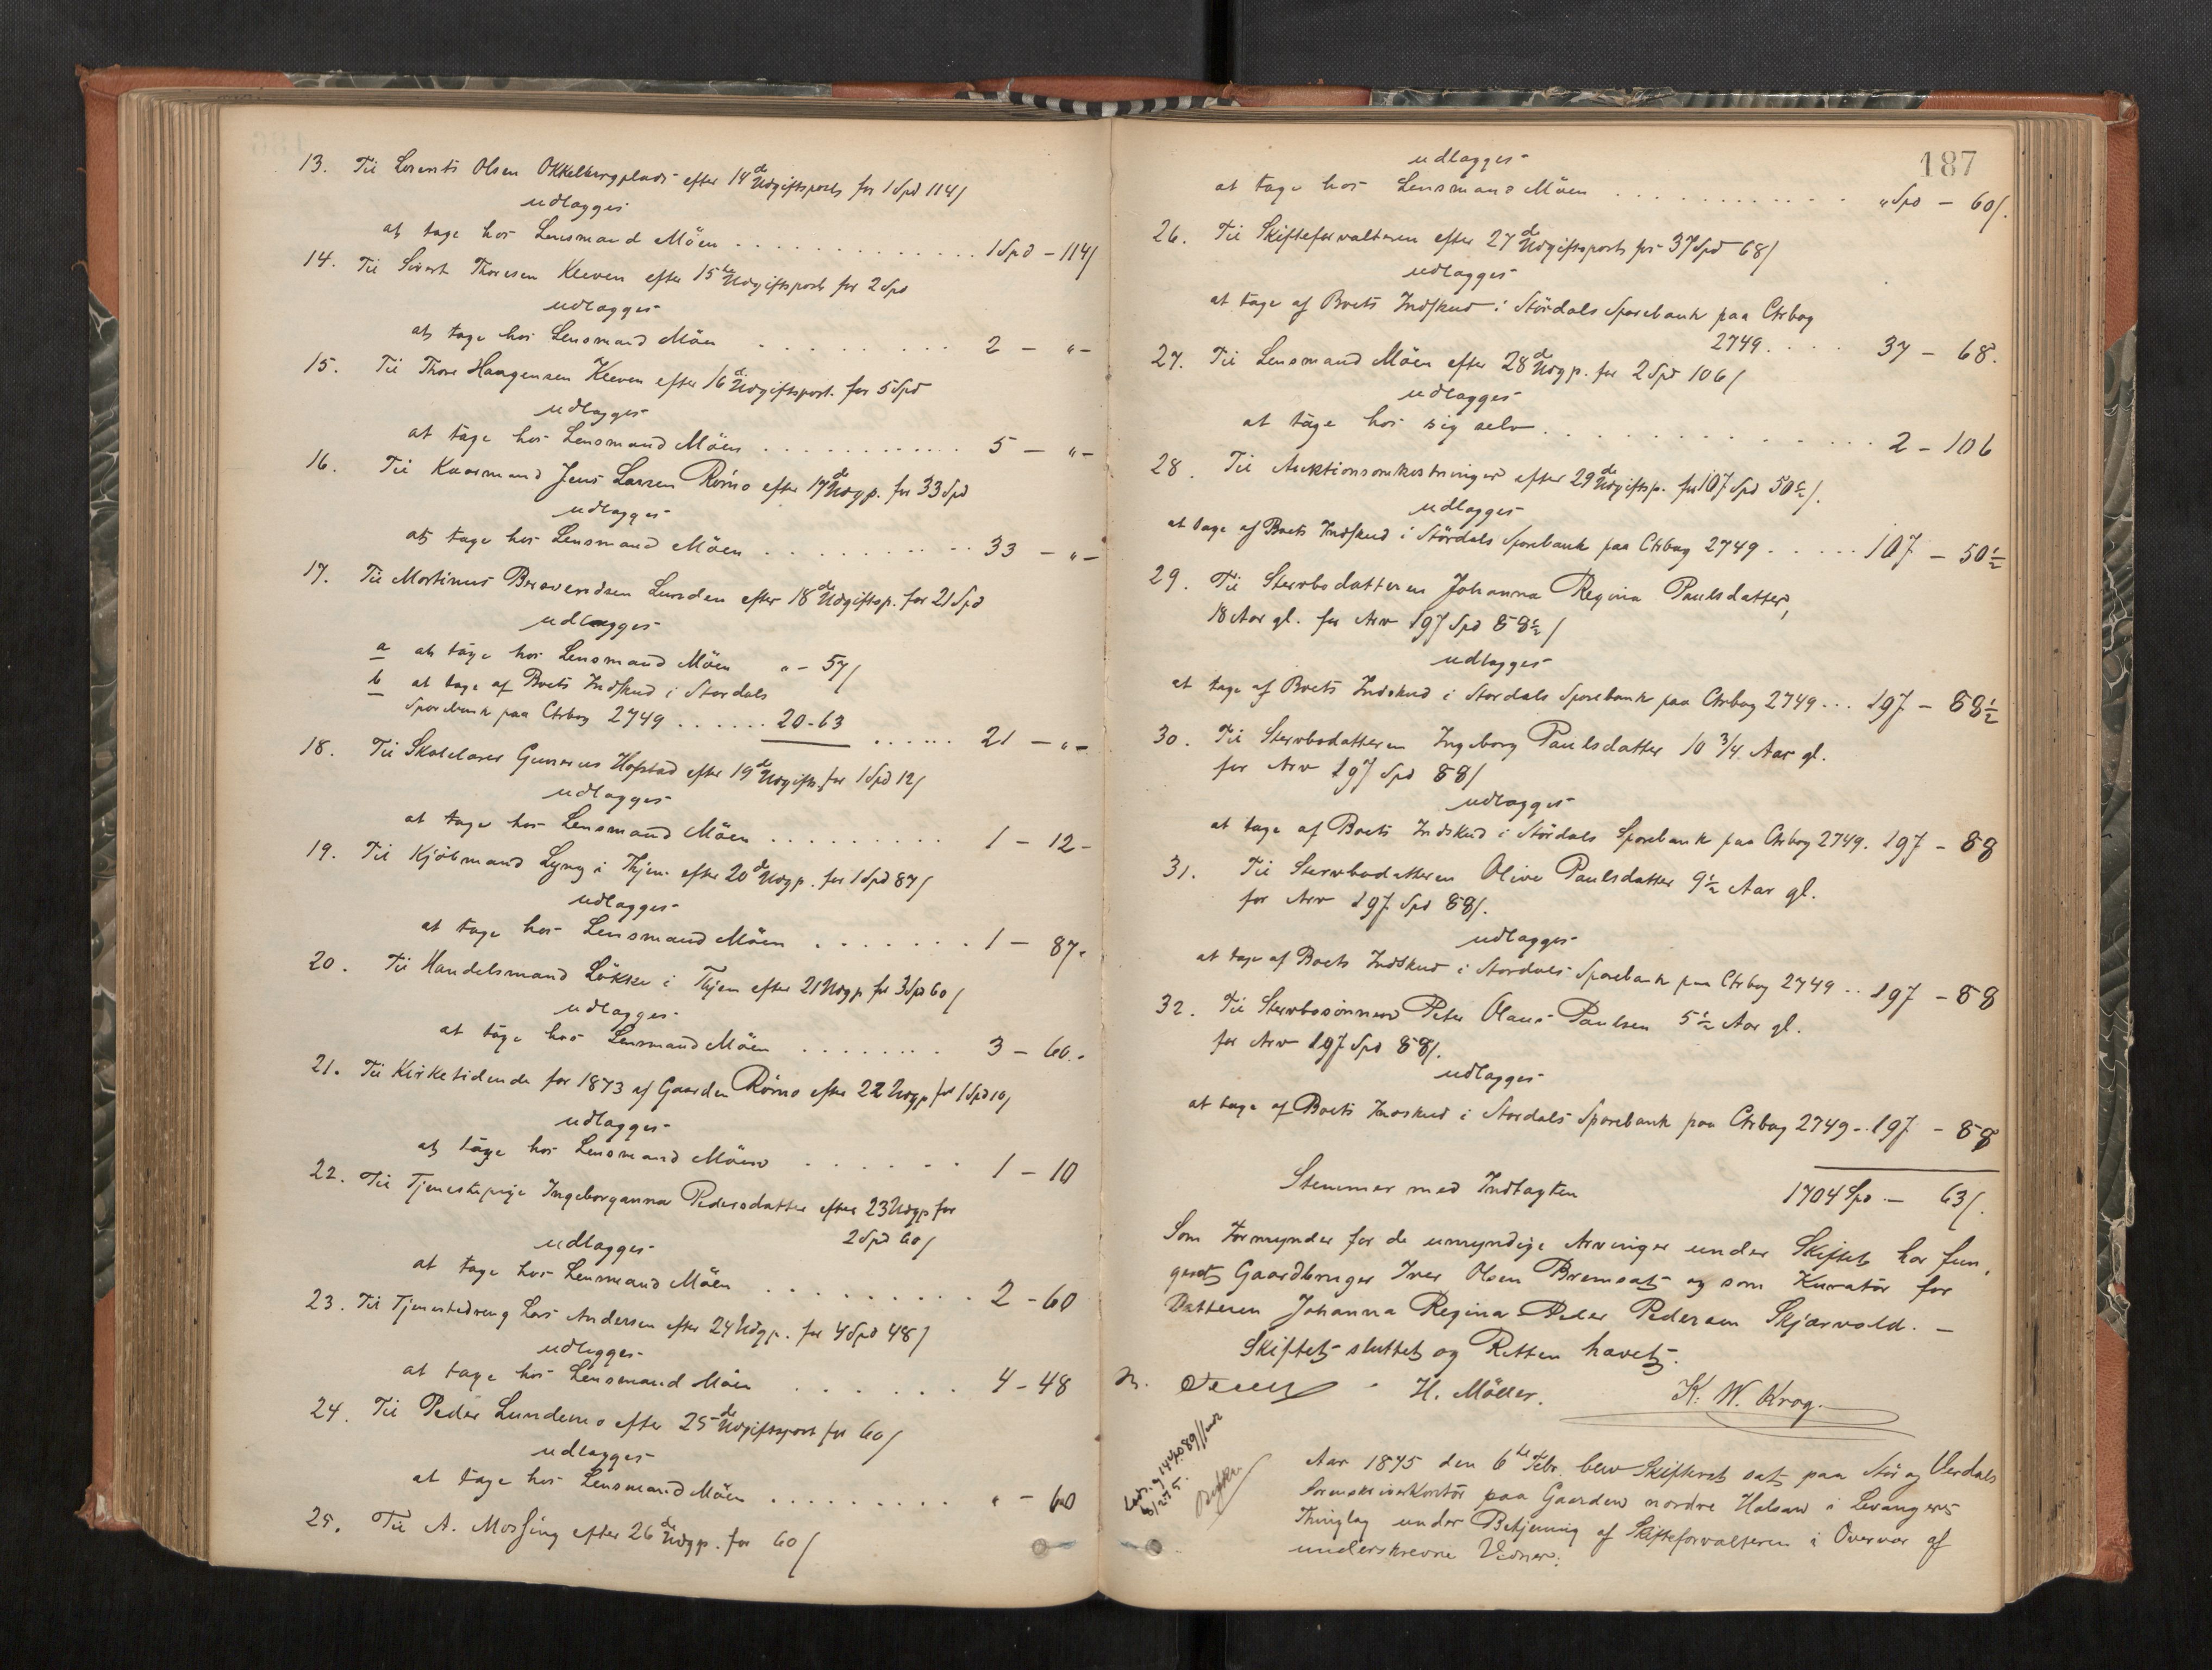 13. Til Lorents Olsen Okkelbergplads efter 14de Udgiftspost for 1 Spd 114/
udlægges
at tage hos Lensmand Möen . . . . . . . . . . . . . 1 Spd - 114/
14. Til Sivert Thoresen Kleven efter 15de Udgiftspost for 2 Spd
udlægges
at tage hos Lensmand Möen . . . . . . . . . 2 - " -
15. Til Thore Haagensen Kleven efter 16de Udgiftspost. for 5 Spd
udlægges
at tage hos Lensmand Möen . . . . . . . . . . . 5 - " -
16. Til Kaarmand Jens Larsen Römo efter 17de Udgp. for 33 Spd
udlægges
at tage hos Lensmand Möen . . . . . . . . . . . 33 - " -
17. Til Mortinus Bersvendsen Lunden efter 18de Udgiftsp. for 21 Spd
udlægges
a at tage hos Lensmand Möen " - 57/
b at tage af Boets Indskud i Stördals
Sparebank paa Ctrbog 2749 . . . . . . 20-63 . . . . . . 21 - " -
18. Til Skolelærer Gunerius Hofstad efter 19de Udgifts. for 1 Spd 12/
udlægges
at tage hos Lensmand Möen . . . . . . . . . 1 - 12 -
19. Til Kjöbmand Lyng i Thjem efter 20de Udgp. for 1 Spd 87/
udlægges
at tage hos Lensmand Möen . . . . . . . 1 - 87 -
20. Til Handelsmand Lökke i Thjem efter 21 Udgp. for 3 Spd 60/
udlægges
at tage hos Lensmand Möen . . . . . . . . 3 - 60 . -
21. Til Kirketiende for 1873 af Gaarden Römo efter 22 Udgp for 1 Spd 10/
udlægges
at tage hos Lensmand Möen . . . . . . 1 - 10
22. Til Tjenestepige Ingeborganna Pedersdatter efter 23 Udgp for
2 Spd 60/
udlægges
at tage hos Lensmand Möen . . . . . . . . . . 2 - 60
23. Til Tjenestedreng Lars Andersen efter 24 Udgp. for 4 Spd 48/
udlægges
at tage hos Lensmand Möen . . . . . . 4 - 48
24. Til Peder Lundemo efter 25de Udgiftspost for 60/
udlægges
at tage hos Lensmand Möen . . . . . . . . . " - 60
25. Til A. Mossing efter 26de Udgp. for 60/
187
udlægges
at tage hos Lensmand Möen . . . . . . . . . . . " Spd - 60/.
26. Til Skifteforvalteren efter 27de Udgiftspost for 37 Spd 68/
udlægges
at tage af Boets Indskud i Stördals Sparebank paa Ctrbog
2749 . . . . 37 - 68.
27. Til Lensmand Möen efter 28de Udgp. for 2 Spd 106/
udlægges
at tage hos sig selv . . . . . . . . . . . . . . . 2 - 106
28. Til Auktionsomkostninger efter 29de Udgiftsp. for 107 Spd 50½/.
udlægges
at tage af Boets Indskud i Stördals Sparebank paa Ctrbog 2749 . . . . . 107 - 50½
29. Til Stervbodatteren Johanna Regina Paulsdatter,
18 Aar gl. for Arv 197 Spd 88½/
udlægges
at tage af Boets Indskud i Stördals Sparebank paa Ctrbog 2749 . . . 197 - 88½
30. Til Stervbodatteren Ingeborg Paulsdatter 10 3/4 Aar gl.
for Arv 197 Spd 88/
udlægges
at tage af Boets Indskud i Stördals Sparebank paa Ctrbog 2749. 197 - 88
31. Til Stervbodatteren Olive Paulsdatter 9½ Aar gl.
for Arv 197 Spd 88/.
udlægges
at tage af Boets Indskud i Stördals Sparebank paa Ctrbog 2749 . . 197 - 88
32. Til Stervbosönnen Peter Olaus Paulsen 5½ Aar gl.
for Arv 197 Spd 88/.
udlægges
at tage af Boets Indskud i Stördals Sparebank paa Ctrbog 2749 . . 197 - 88
Stemmer med Indtægten 1704 Spd. - 63/.
Som Formynder for de umyndige Arvinger under Skiftet har fun-
geret Gaardbruger Iver Olsen Bremset og som Kurator for
Datteren Johanna Regina Peder Pedersen Skjærvold. -
Skiftet sluttet og Retten hævet.
H. Möller. K. W. Krog.
Aar 1875 den 6te Febr. blev Skifteret sat paa Stör og Verdals
Sorenskriverkontor paa Gaarden nordre Halsan i Levangers
Thinglag under Betjening af Skifteforvalteren i Overvær af
underskrevne Vidner: